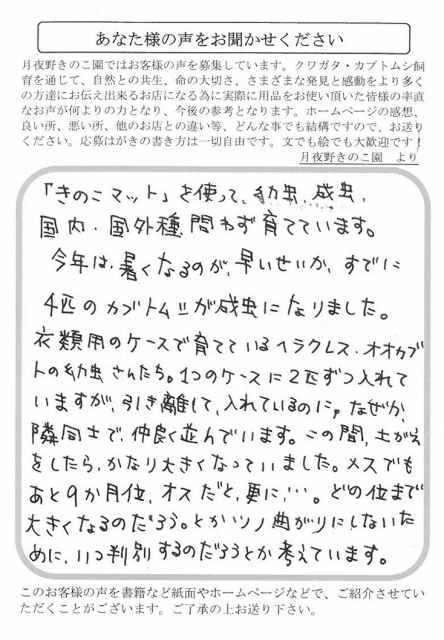 あなた様の声をお聞かせください
月夜野きのこ園ではお客様の声を募集しています。クワガタ・カブトムシ飼
育を通じて、自然との共生、命の大切さ、さまざまな発見と感動をより多く
の方達にお伝え出来るお店になる為に実際に用品をお使い頂いた皆様の率直
なお声が何よりの力となり、今後の参考となります。ホームページの感想、
良い所、悪い所、他のお店との違い等、どんな事でも結構ですので、お送り
ください。応募はがきの書き方は一切自由です。文でも絵でも大歓迎です！
月夜野きのこ園　より
「きのこマット」を使って、幼虫、成虫、
国内・国外種、問わず育てています。
今年は、暑くなるのが、早いせいか、すでに
4匹のカブトムシが成虫になりました。
衣類用のケースで育てているヘラクレス・オオカブ
トの幼虫さんたち。1つのケースに2匹ずつ入れて
いますが、引き離して、入れているのに、なぜか、
隣同士で、仲良く並んでいます。この間、土がえ
をしたら、かなり大きくなっていました。メスでも
あと9か月位、オスだと、更に、…。どの位まで
大きくなるのだろう。とかツノ曲がりにしないた
めに、いつ判別するのだろうとか考えています。
このお客様の声を書籍など紙面やホームページなどで、ご紹介させてい
ただくことがございます。ご了承の上お送り下さい。